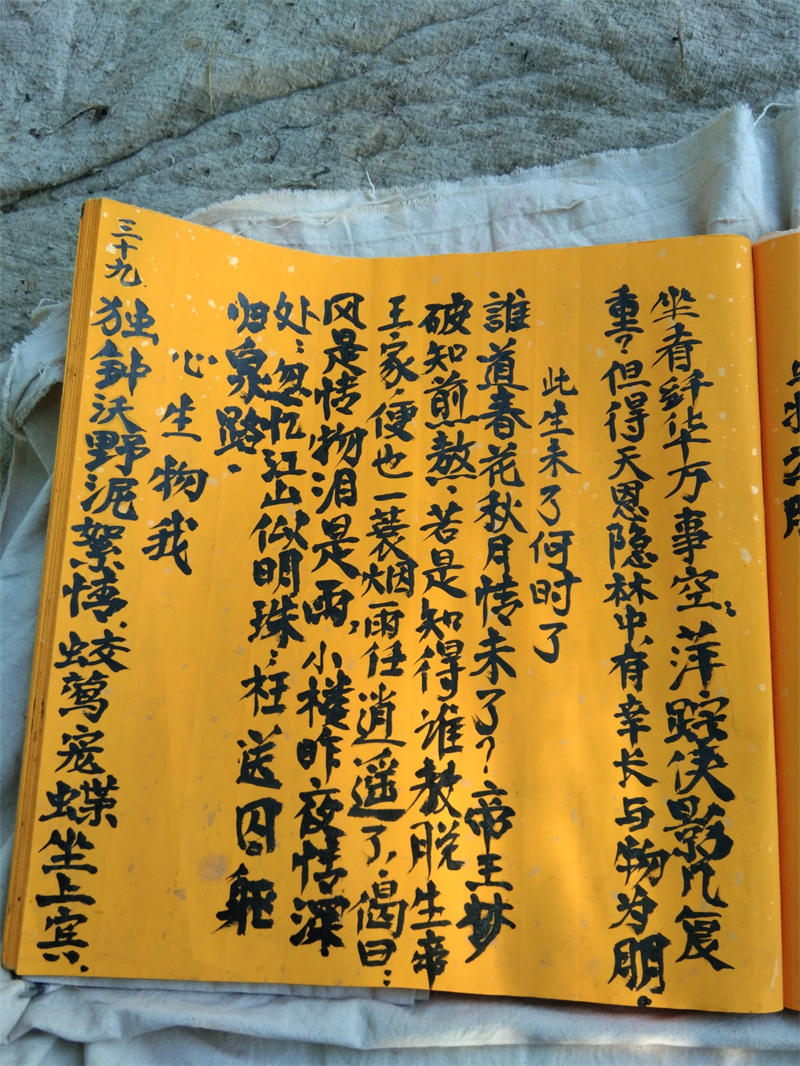 坐看纤华万事空；萍踪侠影几复
重？但得天恩隐林中，有幸长与物为朋。
此生未了何时了
誰道春花秋月情未了？帝王梦
破知煎熬；若是知得谁教脱生帝
王家，便也一蓑烟雨任逍遥了，偈曰：
风是情物泪是雨，小楼昨夜情深
处；忽忆江山似明珠；枉送囚躯
归泉路。
心生物我
独钟沃野泥絮情，蛟莺宠蝶坐上宾；
三十九